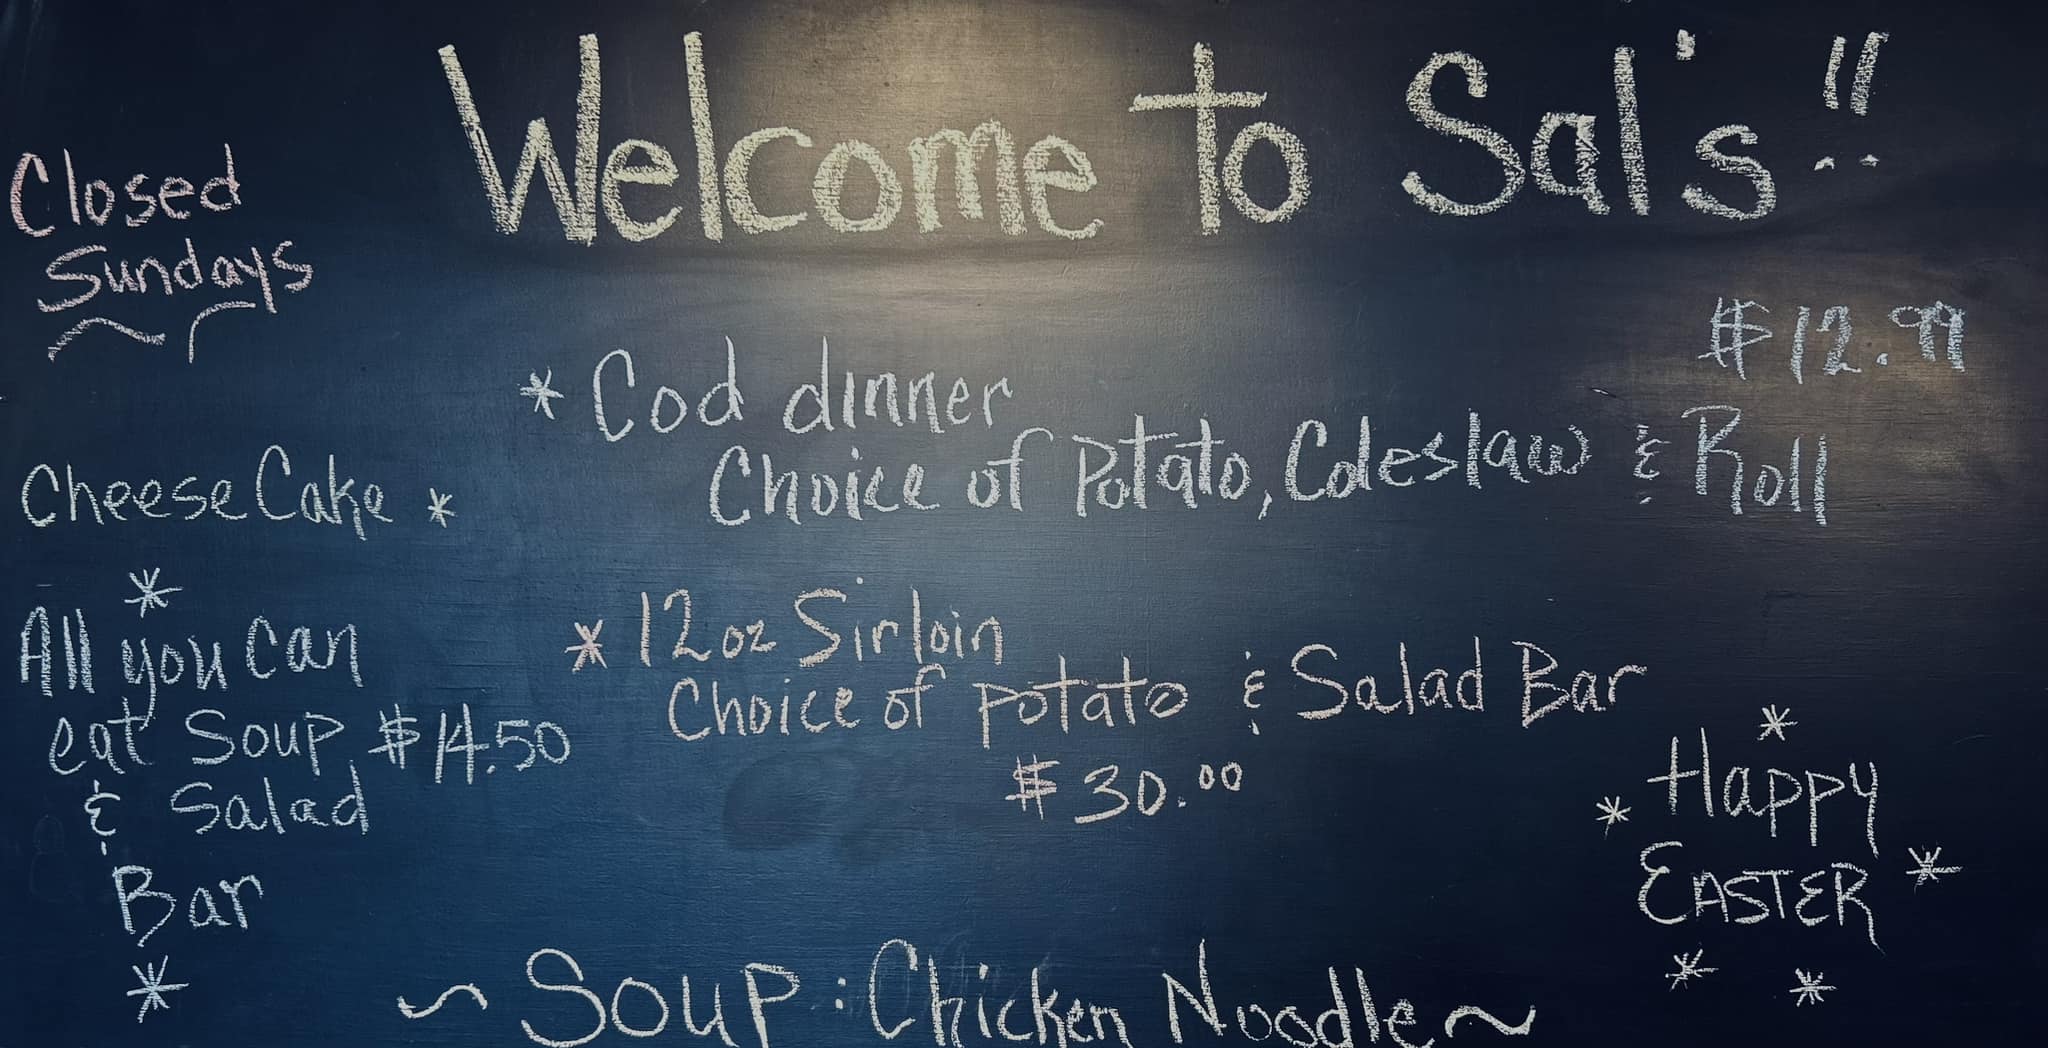 Welcome to Sal's!!
Closed
Sundays
CheeseCake *
*
All you Can
eat Soup $14.50
& Salad
Bar
*
$12.99
* Cod dinner
Choice of Potato, Coleslaw & Roll
* 12oz Sirloin
Choice of potato & Salad Bar
$30.00
*
* Happy
EASTER *
* *
~ Soup: Chicken Noodle ~